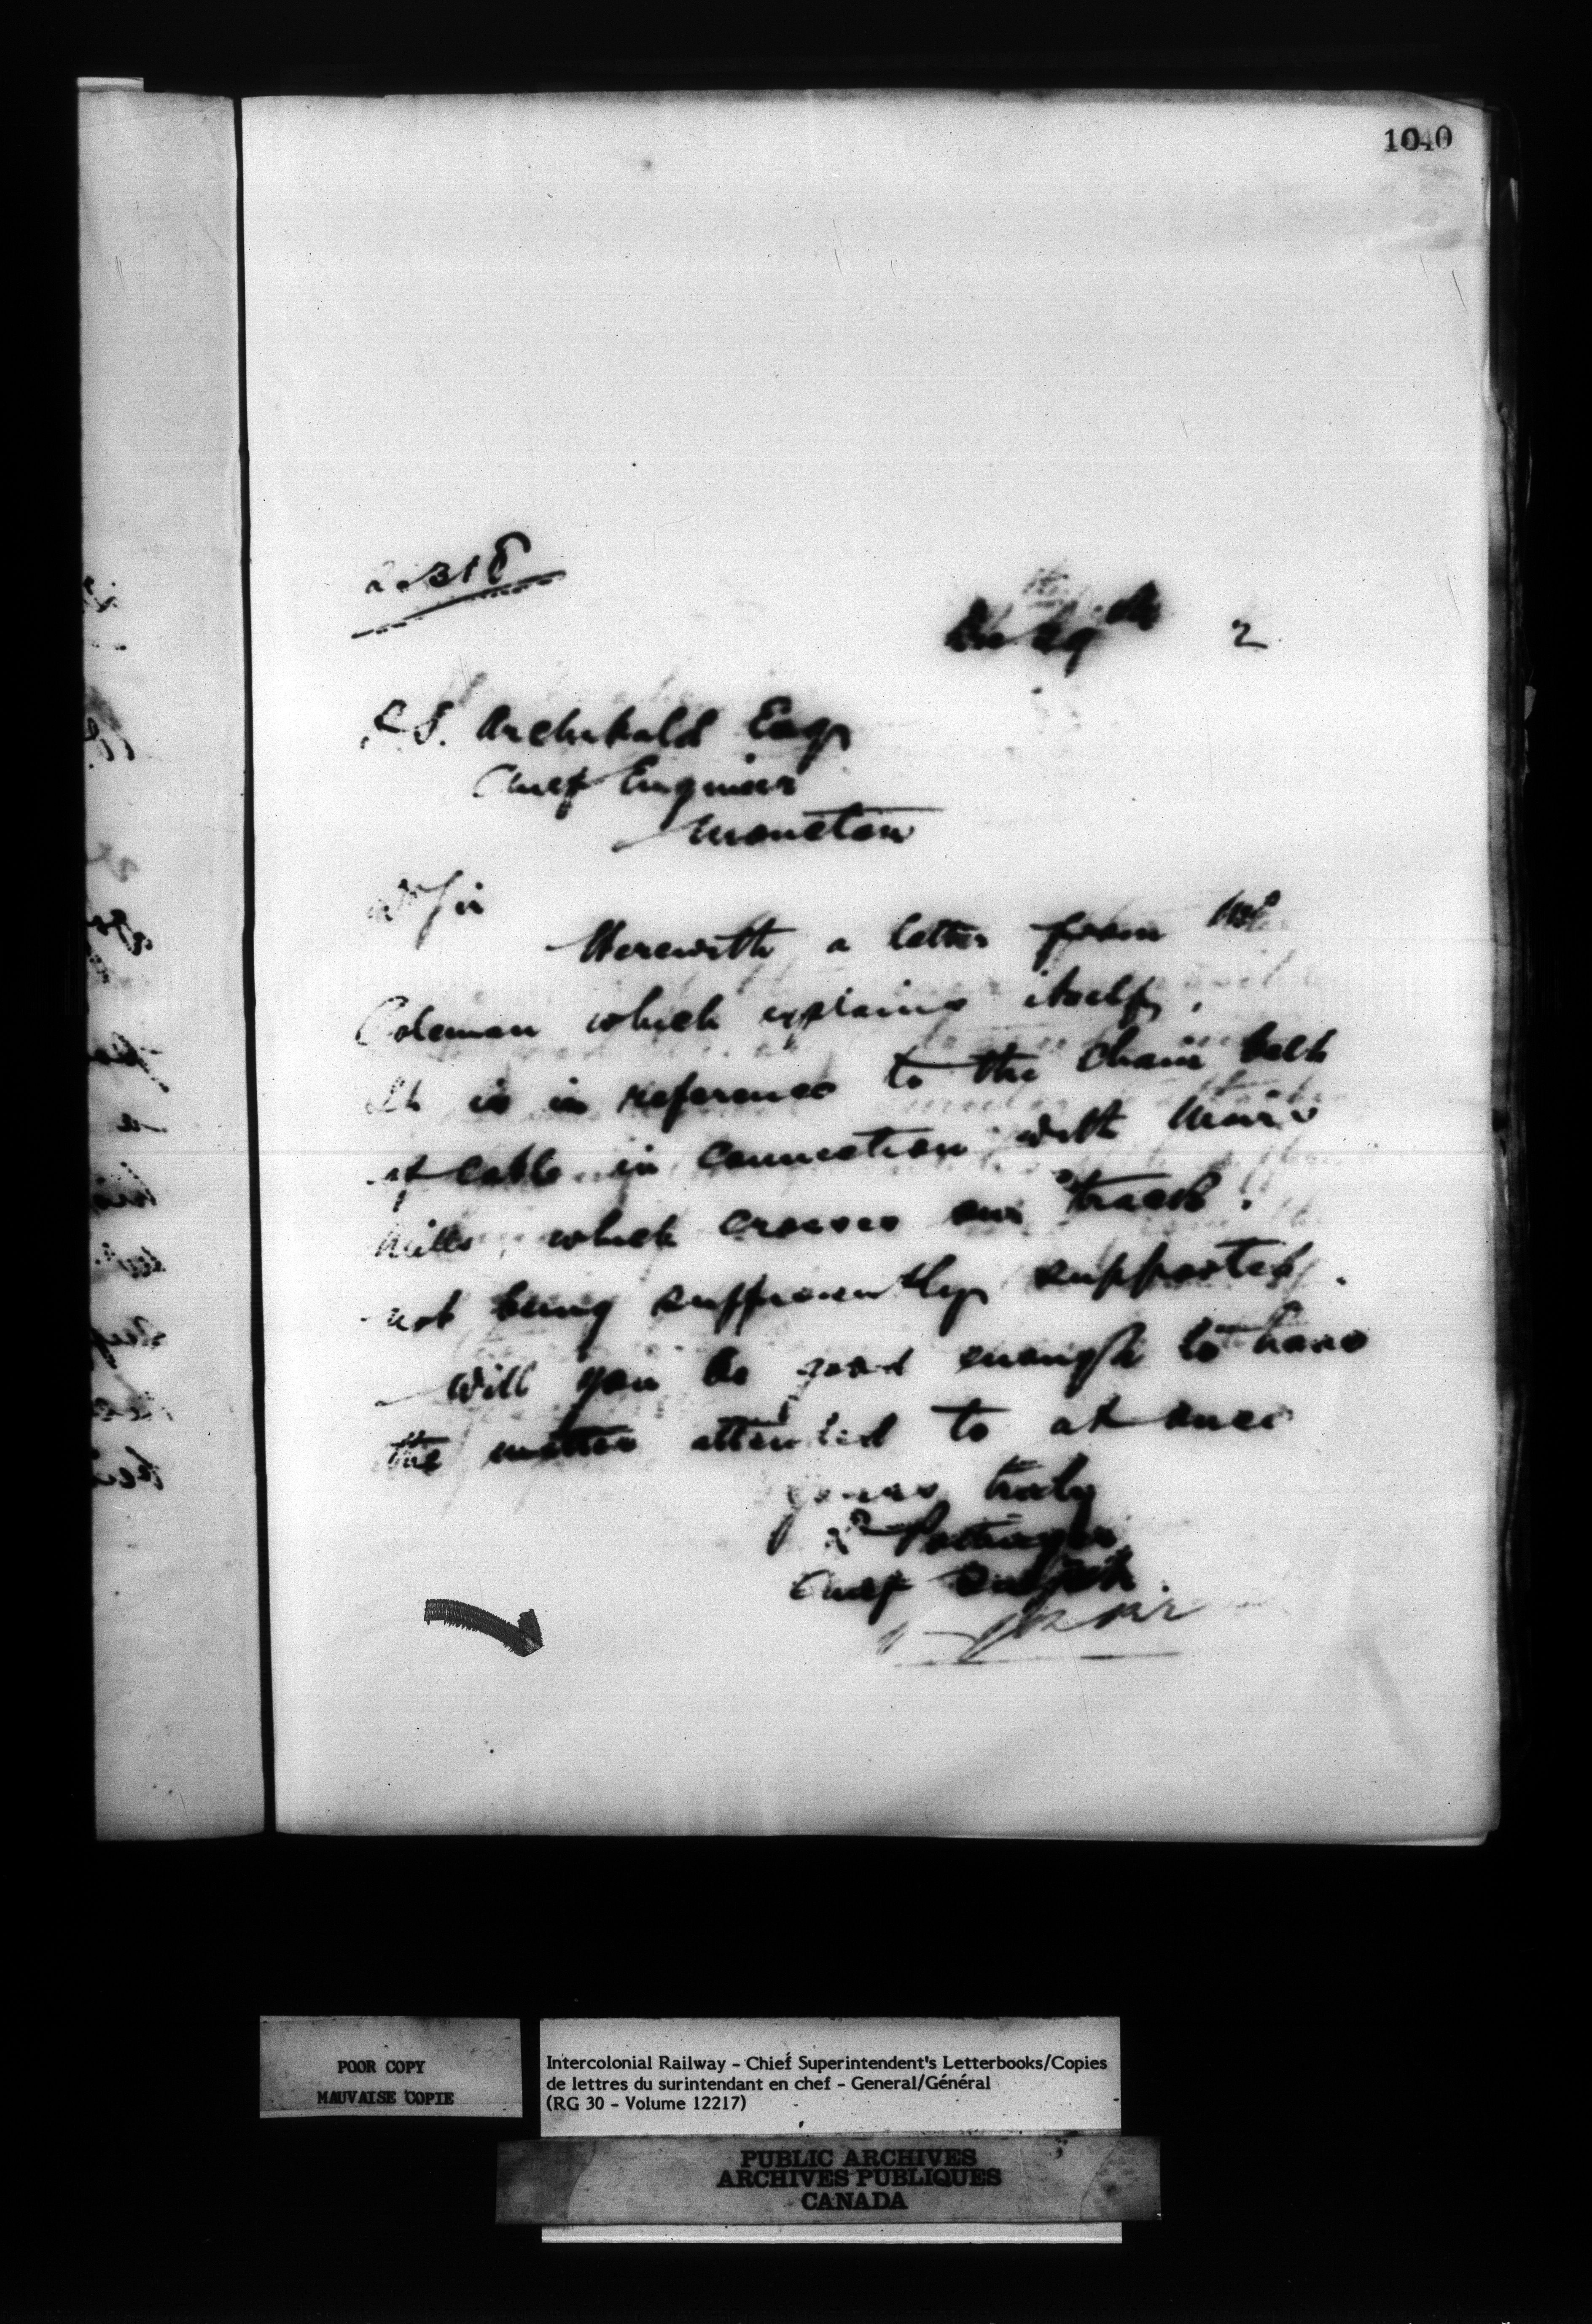 1040
2.318
29th 2
P.S. Archibald Esqr
Chief Engineer
Moncton
Dr Sir
Herewith a letter from Mr
Coleman which explains itself.
It is in reference to the Chain belt
or cable in connection with Muir's
Mills, which crosses our track.
not being sufficiently supported.
Will you be good enough to have
the matter attended to at once
Yours truly
D Pottinger
Chief Supdt.
POOR COPY
MAUVAISE COPIE
Intercolonial Railway - Chief Superintendent's Letterbooks/Copies
de lettres du surintendant en chef - General/Général
(RG 30 - Volume 12217)
PUBLIC ARCHIVES
ARCHIVES PUBLIQUES
CANADA